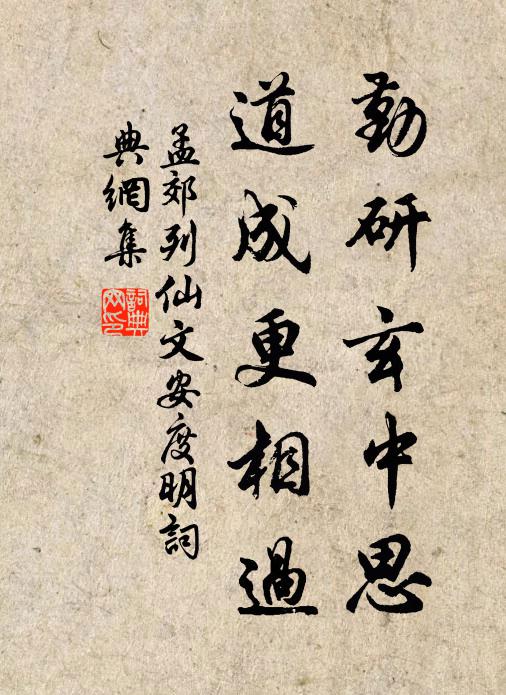 勤研玄中思
道成更相過
孟郊列仙文安度明詞
典網集
詞典網印